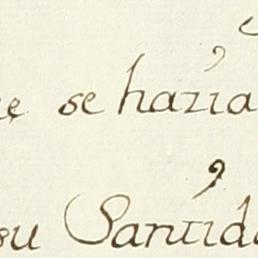 se hazía
su Santida